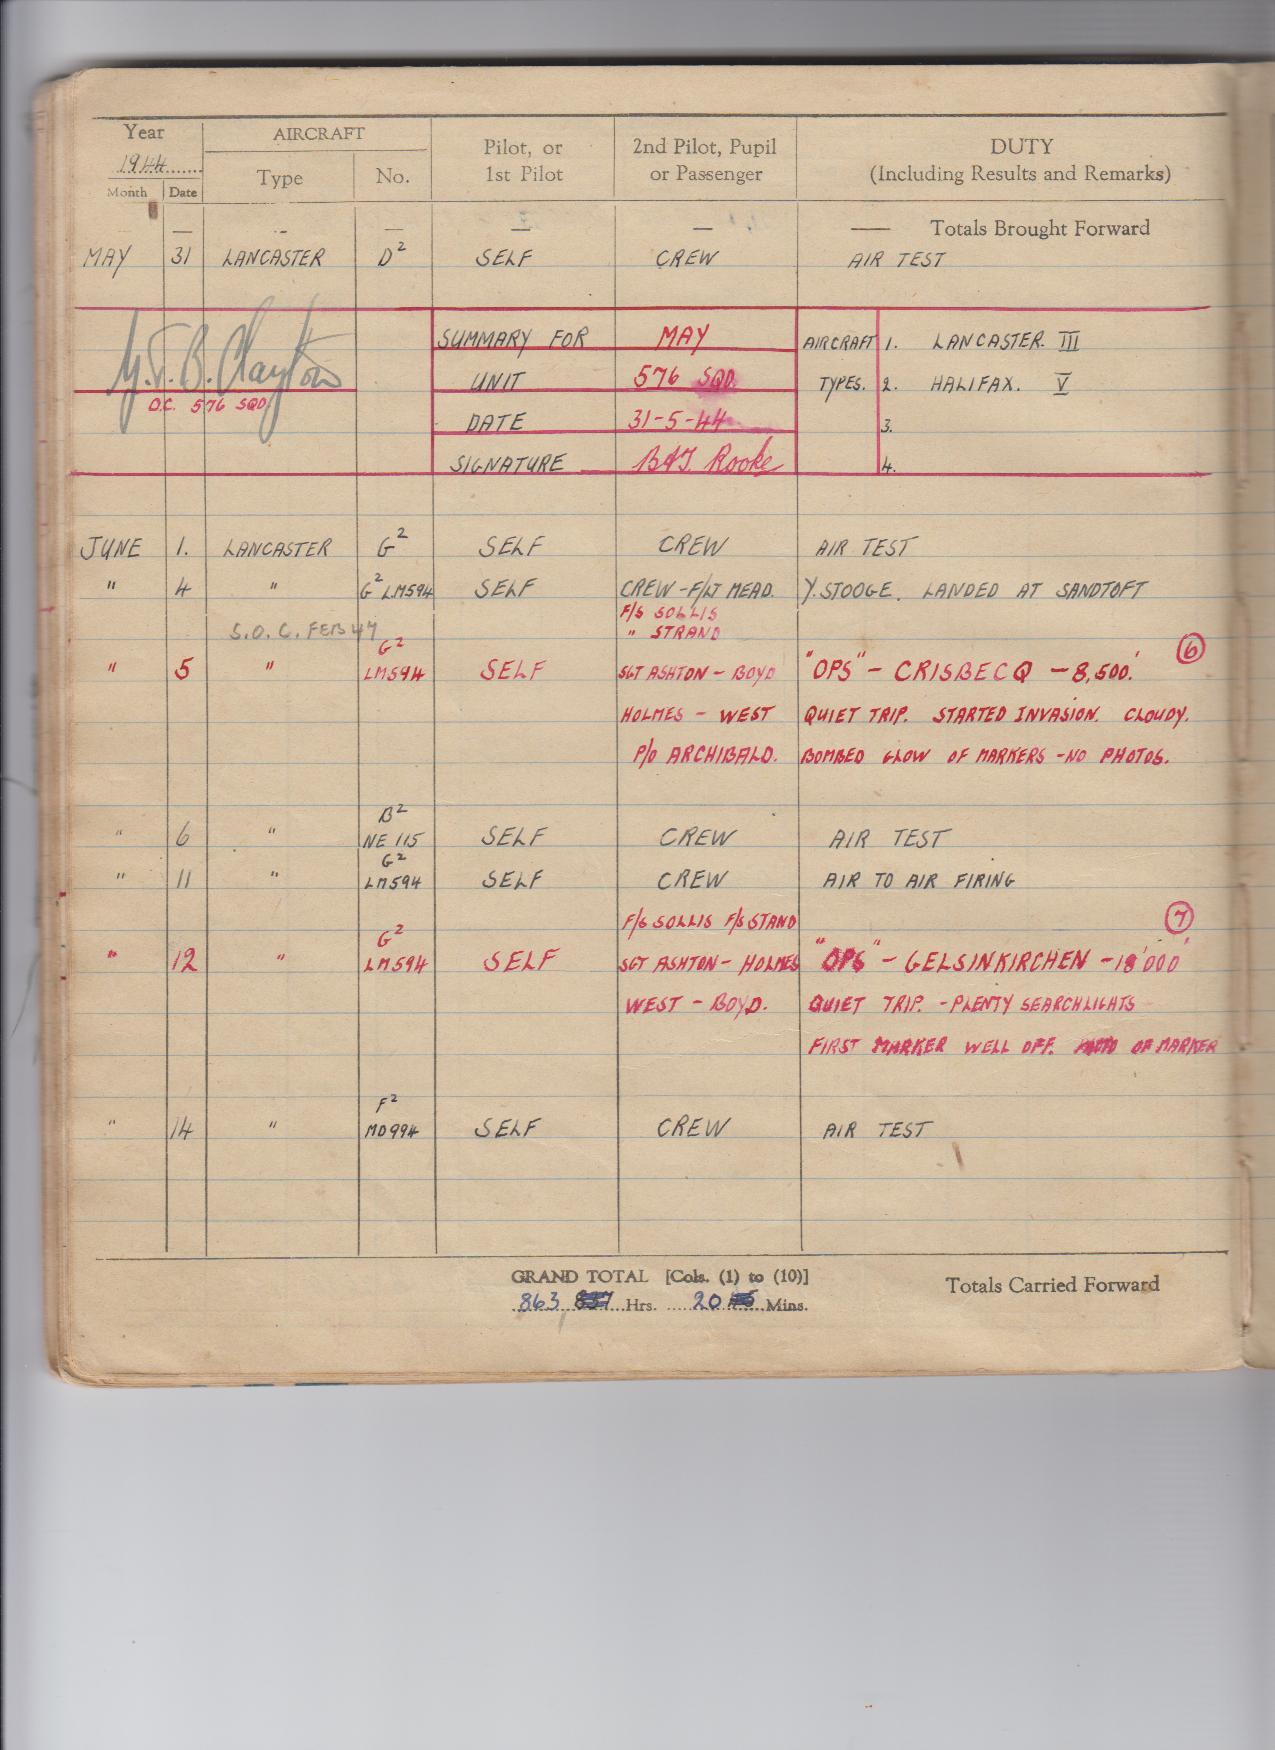 Year AIRCRAFT Pilot, or 1st Pilot 2nd Pilot, Pupil or Passenger DUTY (Including Results and Remarks)
1944 Type No.
Month Date
— — — — — — Totals Brought Forward
MAY 31 LANCASTER D² SELF CREW AIR TEST
SUMMARY FOR MAY AIRCRAFT 1. LANCASTER. III
B. Clayton UNIT 576 SQD. TYPES. 2. HALIFAX. V
O.C. 576 SQD. DATE 31-5-44 3.
SIGNATURE Rooke 4.
JUNE 1. LANCASTER G² SELF CREW AIR TEST
" 4 " G² LM594 SELF CREW - F/LT MEAD. Y. STOOGE. LANDED AT SANDTOFT
F/S SOLLIS
S.O.C. FEB 47 " STRAND
G² 6
" 5 " LM594 SELF SGT ASHTON - BOYD "OPS" - CRISBECQ - 8,500.'
HOLMES - WEST QUIET TRIP. STARTED INVASION. CLOUDY.
P/O ARCHIBALD. BOMBED GLOW OF MARKERS - NO PHOTOS.
B²
" 6 " NE 115 SELF CREW AIR TEST
G²
" 11 " LM594 SELF CREW AIR TO AIR FIRING
F/S SOLLIS F/S STAND 7
G²
" 12 " LM594 SELF SGT ASHTON - HOLMES "OPS" - GELSINKIRCHEN - 18'000'
WEST - BOYD. QUIET TRIP. - PLENTY SEARCHLIGHTS
FIRST MARKER WELL OFF. OF MARKER
F²
" 14 " MD994 SELF CREW AIR TEST
GRAND TOTAL [Cols. (1) to (10)] Totals Carried Forward
863 Hrs. 20 Mins.